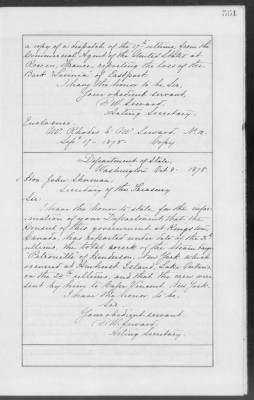 a copy of a dispatch of the 17th ultimo, from the
Commercial Agent of the United States at
Rouen, France, reporting the loss of the
Bark of Eastport
I have the honor to be, Sir,
Your obedient servant,
F. W. Seward,
Acting Secretary.
Enclosure.
Mr. Rhodes to Mr. Seward, No.
Septr 17 - 1878. Copy
Department of State,
Washington Oct 8. 1878.
Hon. John Sherman,
Secretary of the Treasury
Sir:
I have the honor to state, for the infor-
mation of your Department, that the
Consul of this government at Kingston,
Canada, has reported under date of the
ultimo, the total wreck of the Steam barge
of Henderson, New York which
occurred at Amherst Island, Lake Ontario,
on the 24th ultimo, and that the crew were
sent by him to Cape Vincent New York.
I have the honor to be,
Sir,
Your obedient servant
F. W. Seward,
Acting Secretary